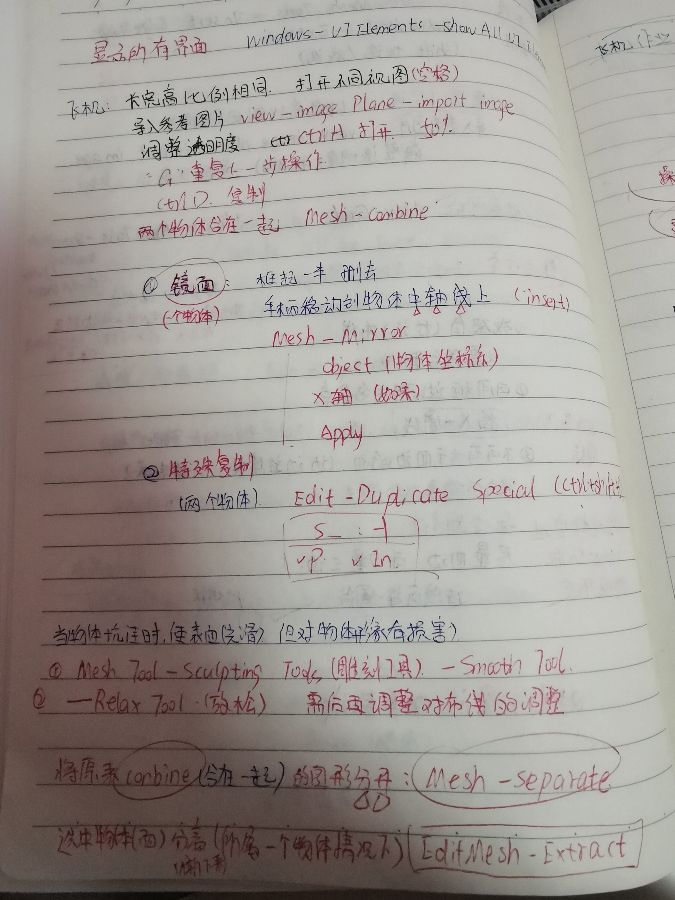 显示所有界面 Windows - UI Elements - Show All UI
飞机: 长宽高比例相同. 打开不同视图(空格)
导入参考图片 view - image Plane - import image
调整透明度 ctrl A 打开. 50%
"G"重复上一步操作
ctrl D. 复制
两个物体合在一起 Mesh - Combine
① 镜面: 框起一半 删去
(一个物体) 手柄移动到物体中轴线上 (insert)
Mesh - Mirror
object (物体坐标系)
X轴 (如果)
Apply
② 特殊复制
(两个物体) Edit - Duplicate Special (ctrl+shift+
S_ : -1
✓P. ✓In
当物体坑洼时,使表面光滑 (但对物体形象有损害)
① Mesh Tool - Sculpting Tools (雕刻工具) - Smooth Tool.
② — Relax Tool. (放松) 需向再调整对布线的调整
将原来combine(合在一起)的图形分开: Mesh - separate
选中物体(面) 分离 (所属一个物体情况下) EditMesh - Extract
飞机